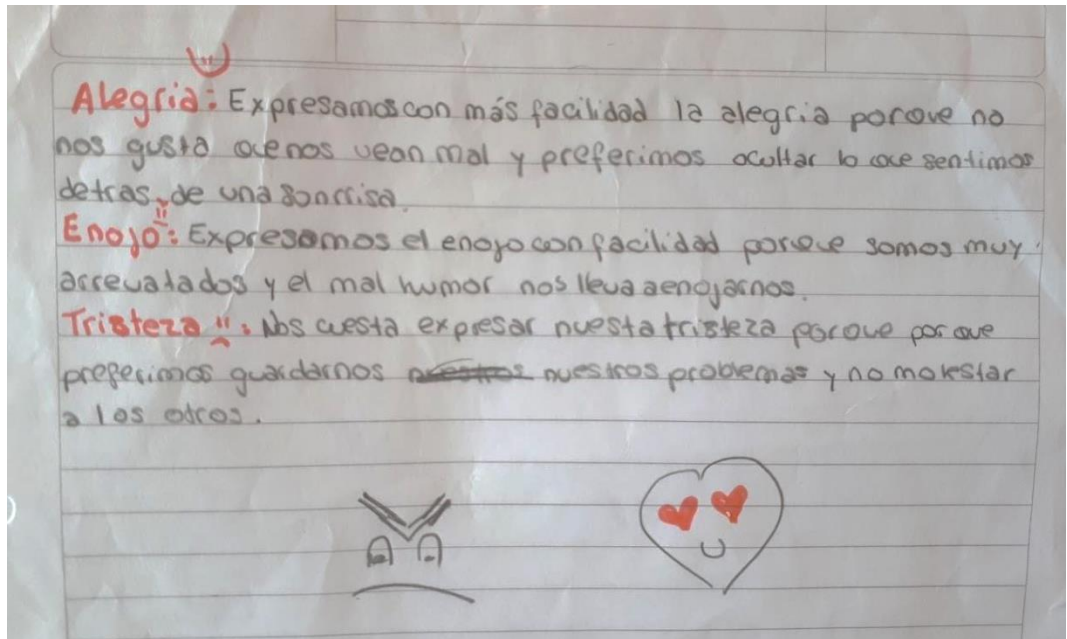 Alegria: Expresamos con más facilidad la alegria porque no
nos gusta que nos vean mal y preferimos ocultar lo que sentimos
detras de una sonrrisa.
Enojo: Expresamos el enojo con facilidad porque somos muy
arrevatados y el mal humor nos lleva a enojarnos.
Tristeza: Nos cuesta expresar nuesta tristeza porque por que
preferimos guardarnos nuestros problemas y no molestar
a los otros.